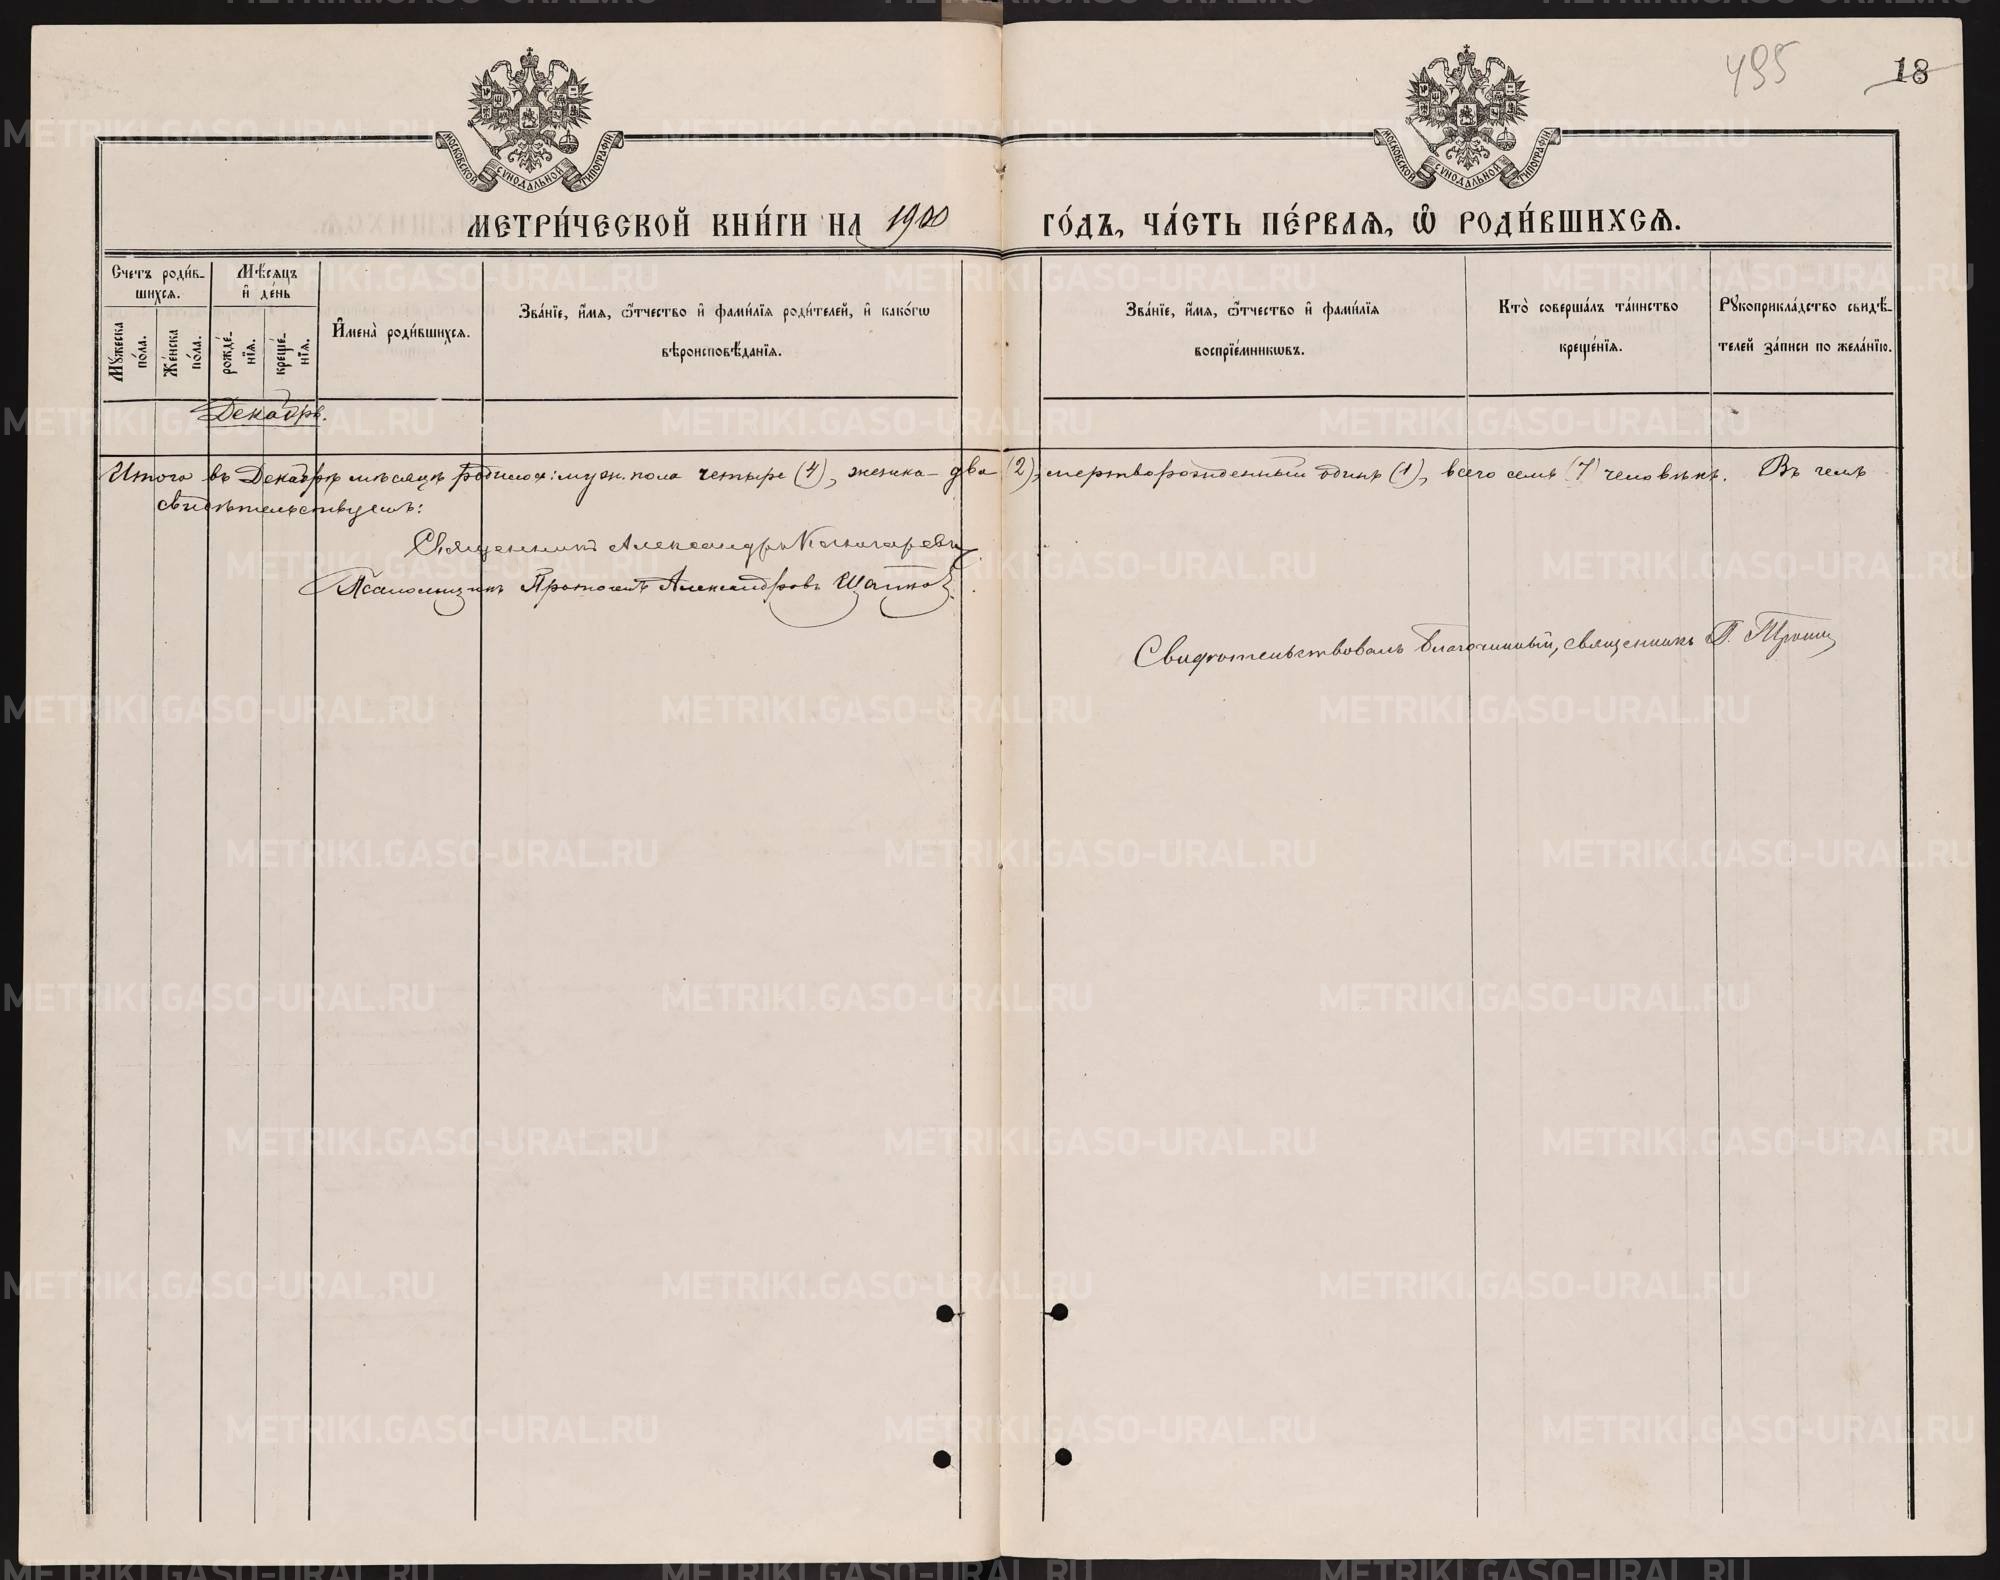 495
18
МОСКОВСКОЙ СѴНОДАЛЬНОЙ ТИПОГРАФІИ
МОСКОВСКОЙ СѴНОДАЛЬНОЙ ТИПОГРАФІИ
МЕТРИ́ЧЕСКОЙ КНИ́ГИ НА 1900 ГО́ДЪ, ЧА́СТЬ ПЕ́РВАЯ, Ѿ РОДИ́ВШИХСЯ.
Счетъ роди́в-
шихся.
Мѣ́сяцъ
и҆ де́нь
Мꙋ́жеска
по́ла.
Же́нска
по́ла.
рожде́-
нїя.
креще́-
нїя.
И҆мена̀ роди́вшихся.
Зва́нїе, и҆́мя, ѻ҆́тчество и҆ фами́лїя роди́телей, и҆ како́гѡ
вѣроисповѣ́данїя.
Зва́нїе, и҆́мя, ѻ҆́тчество и҆ фами́лїя
воспрїе́мникѡвъ.
Кто̀ соверша́лъ та́инство
креще́нїя.
Рꙋкоприкла́дство свидѣ́-
телей за́писи по жела́нїю.
Декабрь.
Итого въ Декабрѣ мѣсяцѣ родилось: муж. пола четыре (4), женска – два (2), мертворожденный одинъ (1), всего семь (7) человѣкъ. Въ чемъ
свидѣтельствуемъ:
Священникъ Александръ
Псаломщикъ Александровъ
Свидѣтельствовалъ благочинный, священникъ П.
METRIKI.GASO-URAL.RU